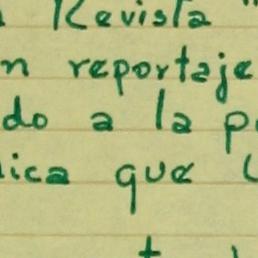 Revista "
n reportaje
do a la p
ica que